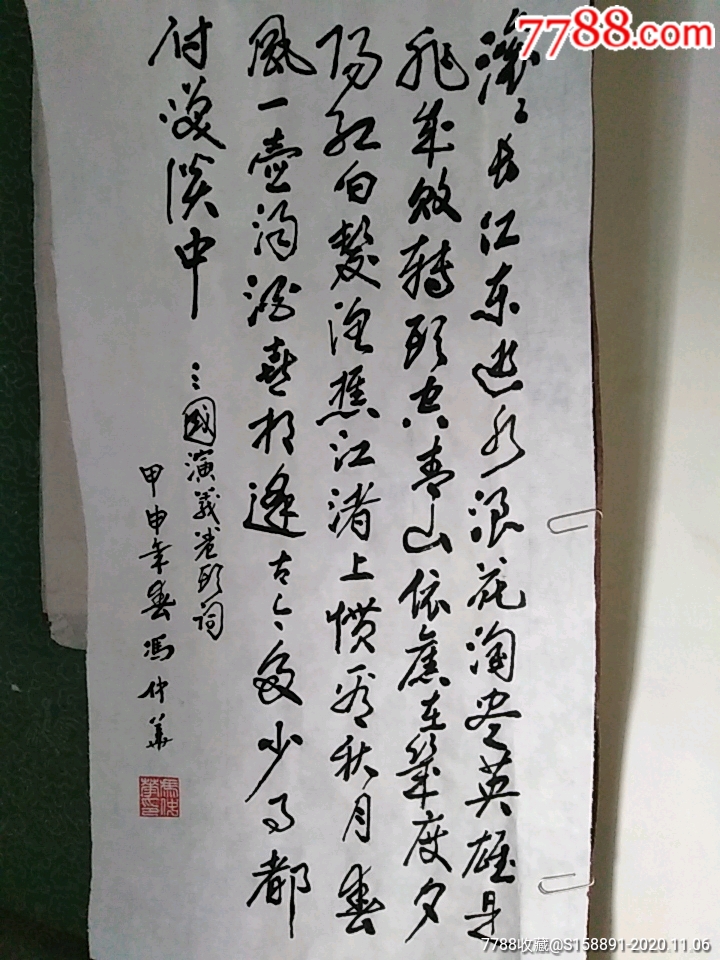 7788.com
滚〻长江东逝水浪花淘尽英雄是
非成败转头空青山依旧在几度夕
阳红白发渔樵江渚上惯看秋月春
风一壶浊酒喜相逢古今多少事都
付笑谈中
三國演义卷头词
甲申年春馮仲华
馮仲华印
7788收藏@S158891-2020.11.06